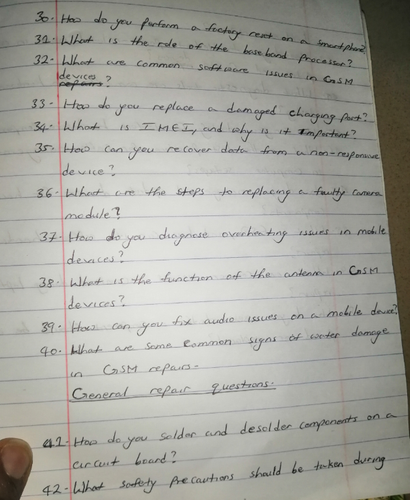 30. How do you perform a factory reset on a smartphone?
31. What is the role of the baseband processor?
32. What are common software issues in GSM
devices?
33. How do you replace a damaged charging port?
34. What is IMEI, and why is it important?
35. How can you recover data from a non-responsive
device?
36. What are the steps to replacing a faulty camera
module?
37. How do you diagnose overheating issues in mobile
devices?
38. What is the function of the antenna in GSM
devices?
39. How can you fix audio issues on a mobile device?
40. What are some common signs of water damage
in GSM repairs.
General repair questions.
41. How do you solder and desolder components on a
circuit board?
42. What safety precautions should be taken during